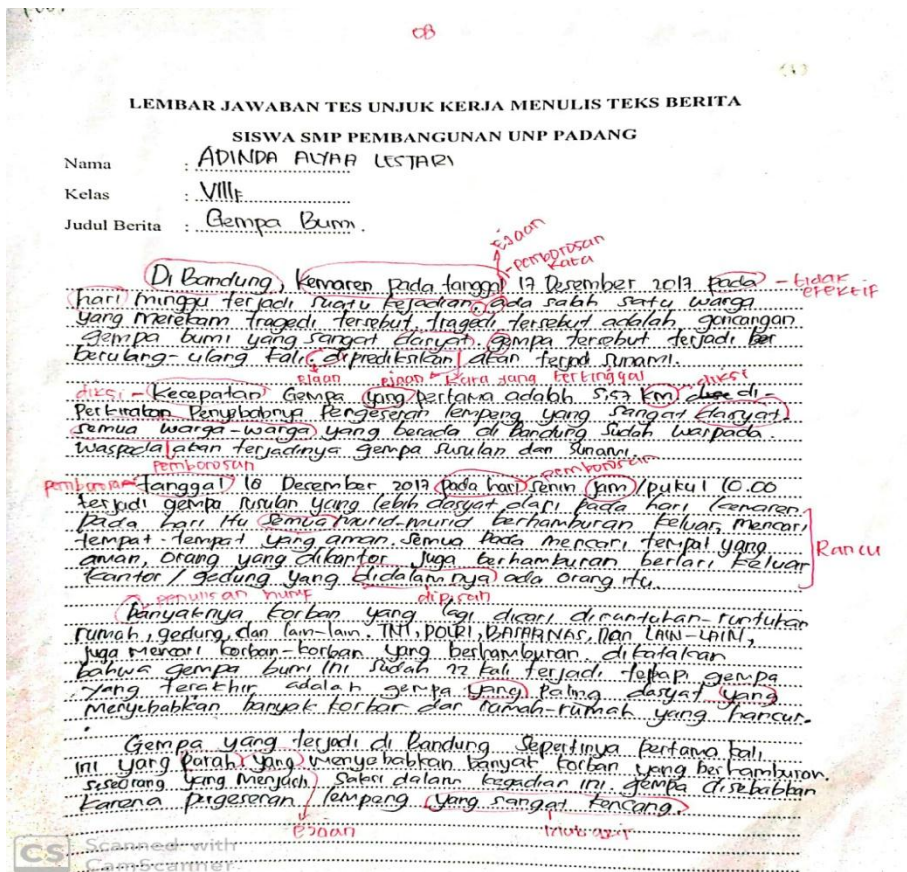 08
LEMBAR JAWABAN TES UNJUK KERJA MENULIS TEKS BERITA
SISWA SMP PEMBANGUNAN UNP PADANG
Nama : ADINDA ALYAA LESTARI
Kelas : VIIIF
Judul Berita : Gempa Bumi.
Ejaan
pemborosan
kata
Di Bandung, kemaren pada tanggal 17 Desember 2017 pada - tidak
efektif
hari minggu terjadi suatu kejadian. ada salah satu warga
yang merekam tragedi tersebut. tragedi tersebut adalah, goncangan
gempa bumi yang sangat dasyat. Gempa tersebut terjadi ber
berulang-ulang kali. diprediksikan akan terjadi sunami.
ejaan ejaan kata yang tertinggal
diksi - Kecepatan Gempa yang pertama adalah 5,57 Km diksi
di
Perkirakan Penyebabnya Pengeseran lempeng yang sangat dasyat.
semua warga-warga yang berada di Bandung sudah waspada.
waspada akan terjadinya gempa susulan dan sunami.
Pemborosan pemborosan
pemborosan tanggal 18 Desember 2017 pada hari senin jam/pukul 10.00
terjadi gempa susulan yang lebih dasyat dari pada hari kemaren.
Pada hari itu semua murid-murid berhamburan keluar, mencari
tempat-tempat yang aman. semua pada mencari tempat yang
aman, orang yang dikantor juga berhamburan berlari keluar
Rancu
kantor / gedung yang didalamnya ada orang itu.
penulisan huruf dipisah
Banyaknya korban yang lagi dicari diruntuhan-runtuhan
rumah, gedung, dan lain-lain. TNI, POLRI, BASARNAS, Dan LAIN-LAIN,
juga mencari korban-korban yang berhamburan. dikatakan
bahwa gempa bumi ini sudah 22 kali terjadi tetapi gempa
yang terakhir adalah gempa yang paling dasyat yang
menyebabkan banyak korban dan rumah-rumah yang hancur.
Gempa yang terjadi di Bandung sepertinya pertama kali
ini yang parah yang menyebabkan banyak korban yang berhamburan.
seseorang yang menjadi saksi dalam kegadian ini. gempa disebabkan
karena pegeseran lempang yang sangat kencang.
ejaan mubazir
CS Scanned with
CamScanner